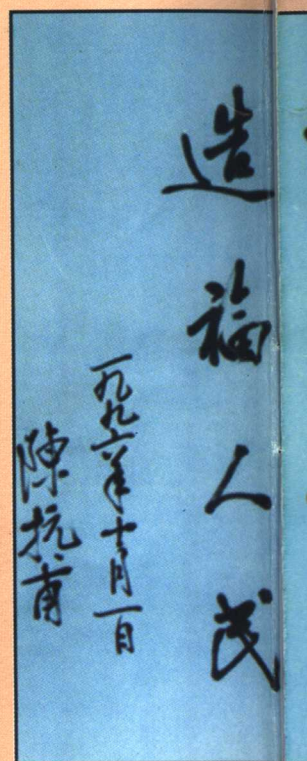 造福人民
一九九六年十月一日
陳抗甫